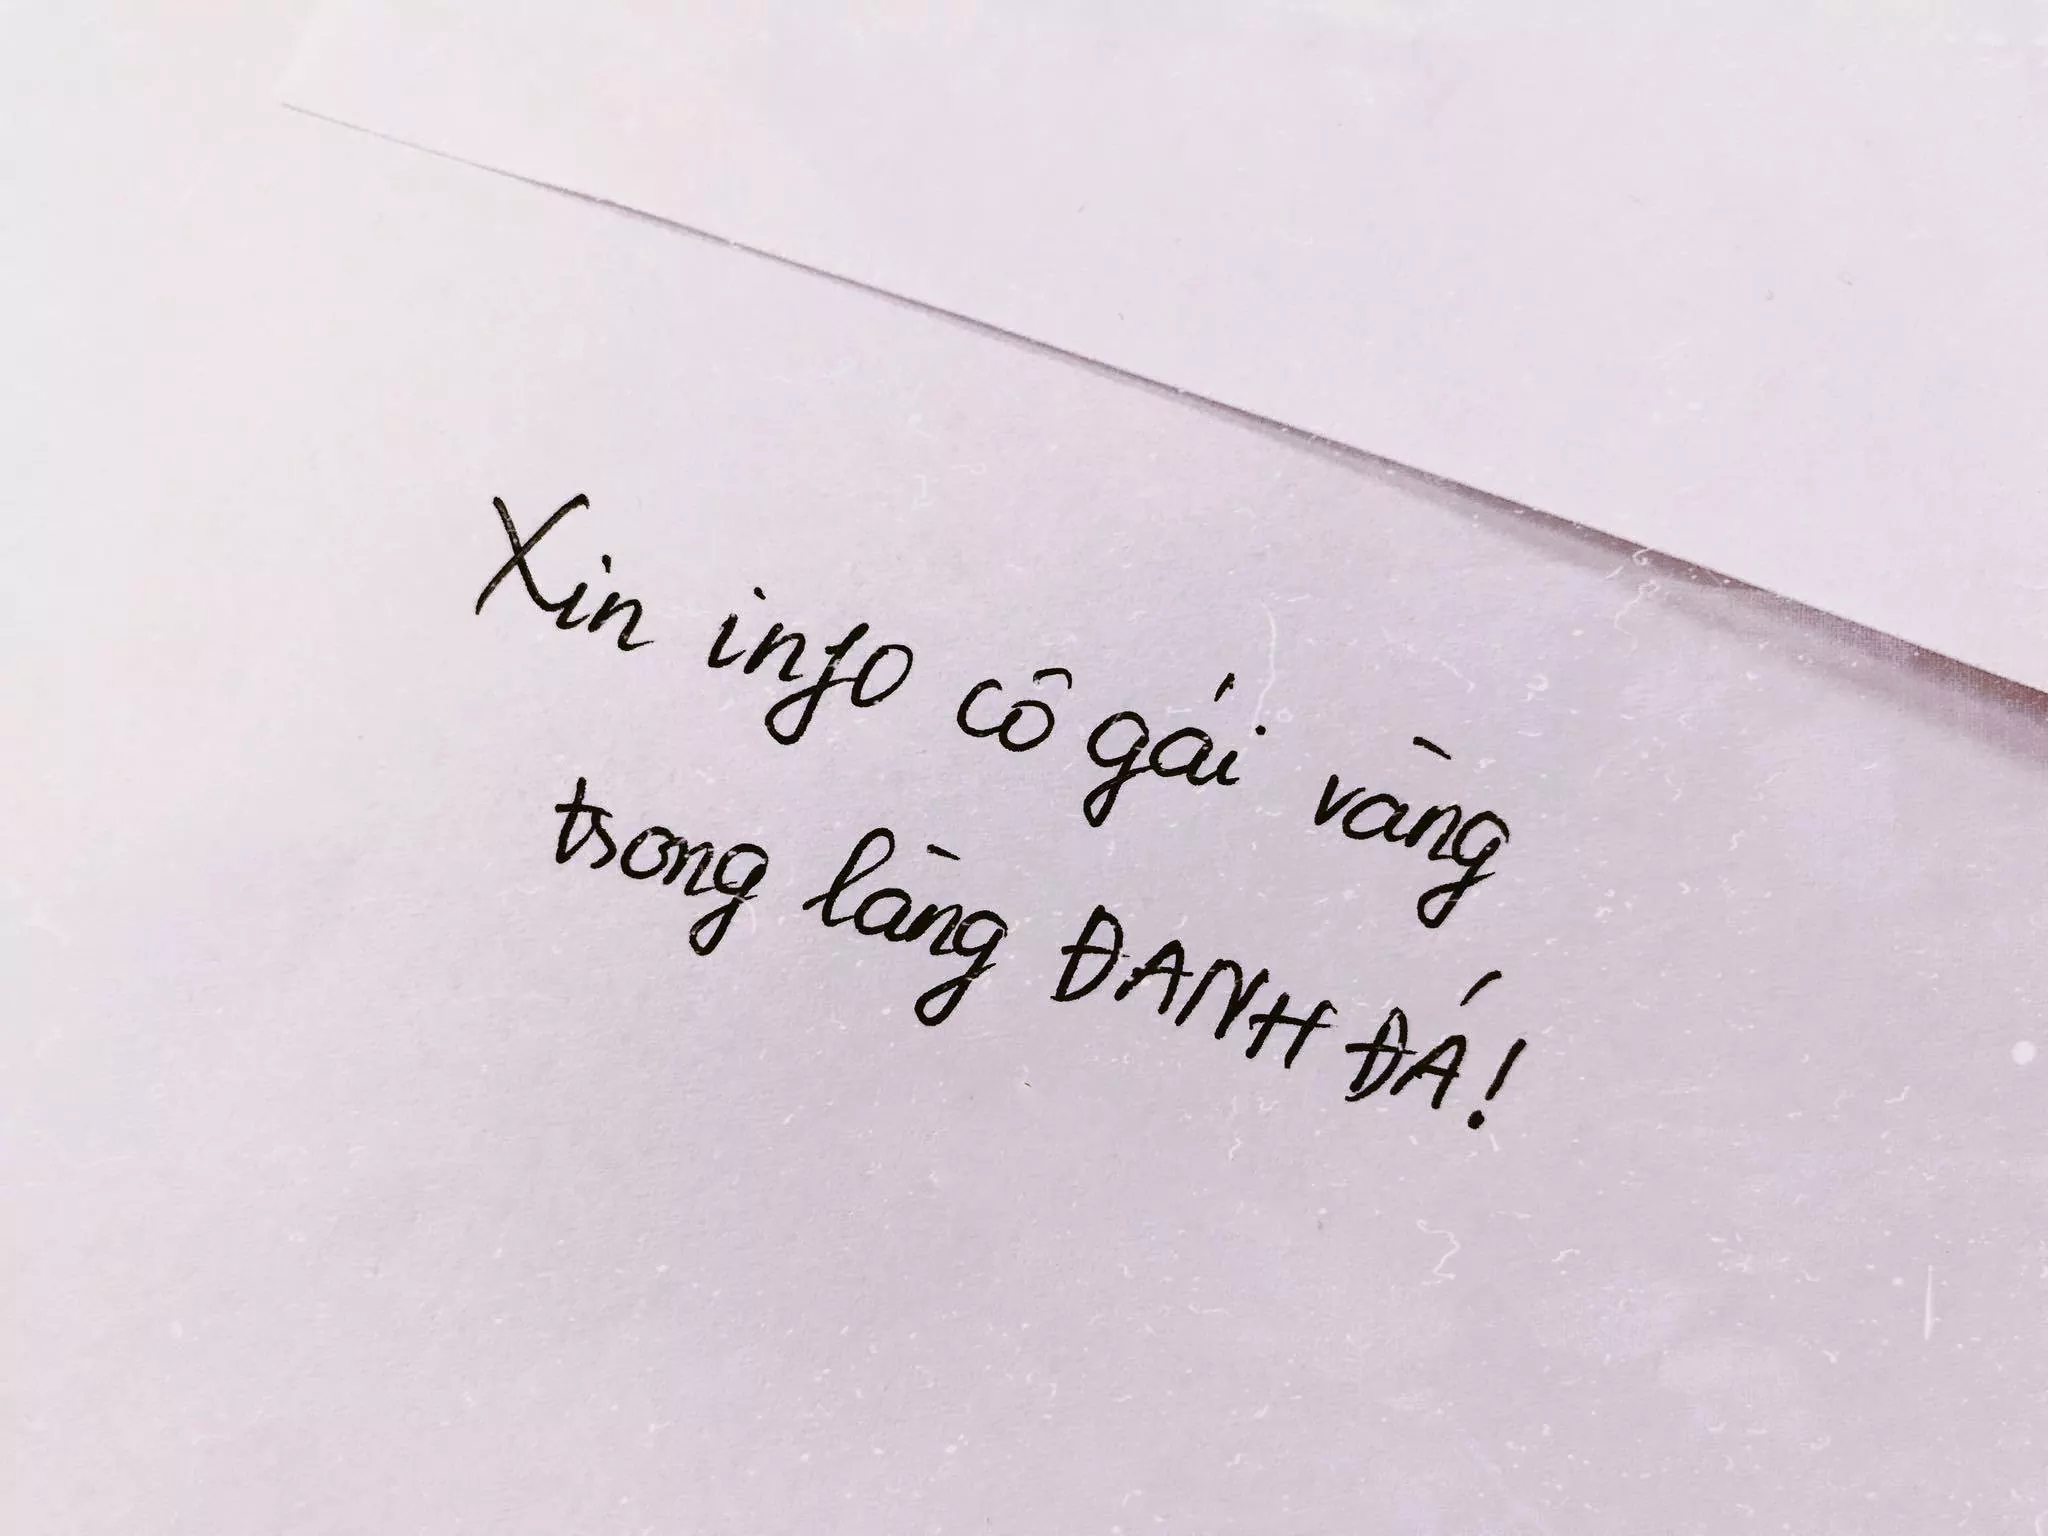 Xin info cô gái vàng
trong làng ĐANH ĐÁ!